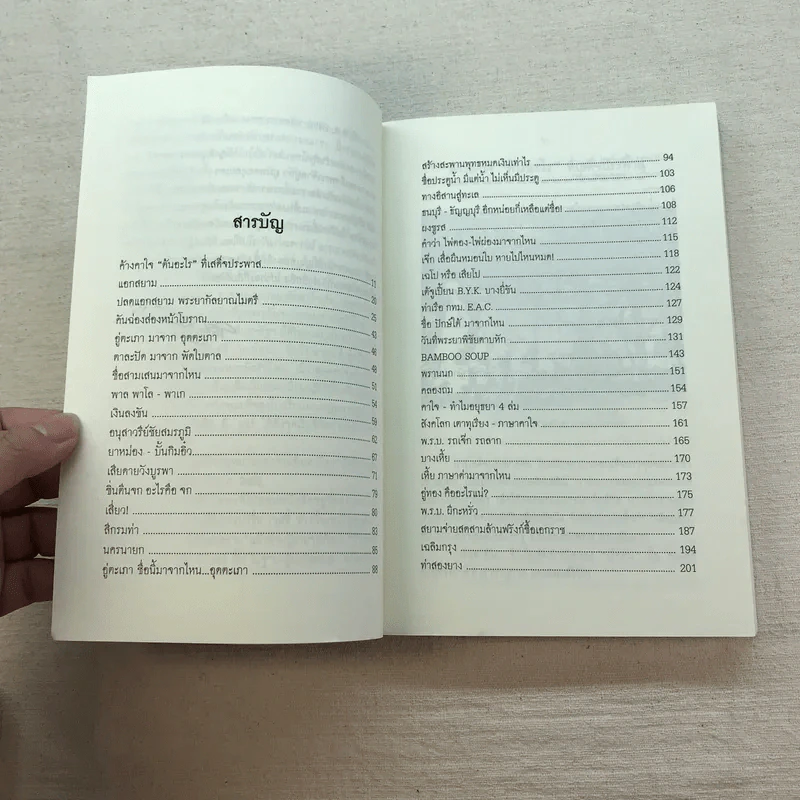 สารบัญ
ค้างคาใจ "คันอะไร" ที่เสด็จประพาส
แอกสยาม 11
ปลดแอกสยาม พระยากัลยาณไมตรี 20
คันฉ่องส่องหน้าโบราณ 25
อู่ตะเภา มาจาก อุดตะเภา 43
ตาละปัด มาจาก พัดใบตาล 46
ชื่อสามเสนมาจากไหน 51
พาล พาโล - พาเก 54
เงินลงขัน 59
อนุสาวรีย์ชัยสมรภูมิ 62
ยาหม่อง - บั้นกิมอิ๋ว 67
เสียดายวังบูรพา 71
ชิ่นดืนจก อะไรคือ จก 79
เสี่ยว! 80
สีกรมท่า 83
นครนายก 85
อู่ตะเภา ชื่อนี้มาจากไหน...อุดตะเภา 88
สร้างสะพานพุทธหมดเงินเท่าไร 94
ชื่อประตูน้ำ มีแค่น้ำ ไม่เห็นมีประตู 103
ทางอีสานสู่ทะเล 106
ธนบุรี - ธัญญบุรี อีกหน่อยก็เหลือแค่ชื่อ! 108
ผงชูรส 112
คำว่า ไพ่ตอง-ไพ่ผ่องมาจากไหน 115
เจ๊ก เสื่อผืนหมอนใบ หายไปไหนหมด! 118
เฉโป หรือ เสียโป 122
เต้จูเปี้ยน B.Y.K. บางยี่ขัน 124
ท่าเรือ กทม. E.A.C. 127
ชื่อ ปักษ์ใต้ มาจากไหน 129
วันที่พระยาพิชัยดาบหัก 131
BAMBOO SOUP 143
พรานนก 151
คลองถม 154
คาใจ - ทำไมอยุธยา 4 ล่ม 157
สังคโลก เตาทุเรียง - ภาษาคาใจ 161
พ.ร.บ. รถเจ๊ก รถลาก 165
บางเหี้ย 170
เหี้ย ภาษาด่ามาจากไหน 173
อู่ทอง คืออะไรแน่? 175
พ.ร.บ. ผีกะหรัว 177
สยามจ่ายสดสามล้านฟรังก์ซื้อเอกราช 187
เฉลิมกรุง 194
ท่าสองยาง 201